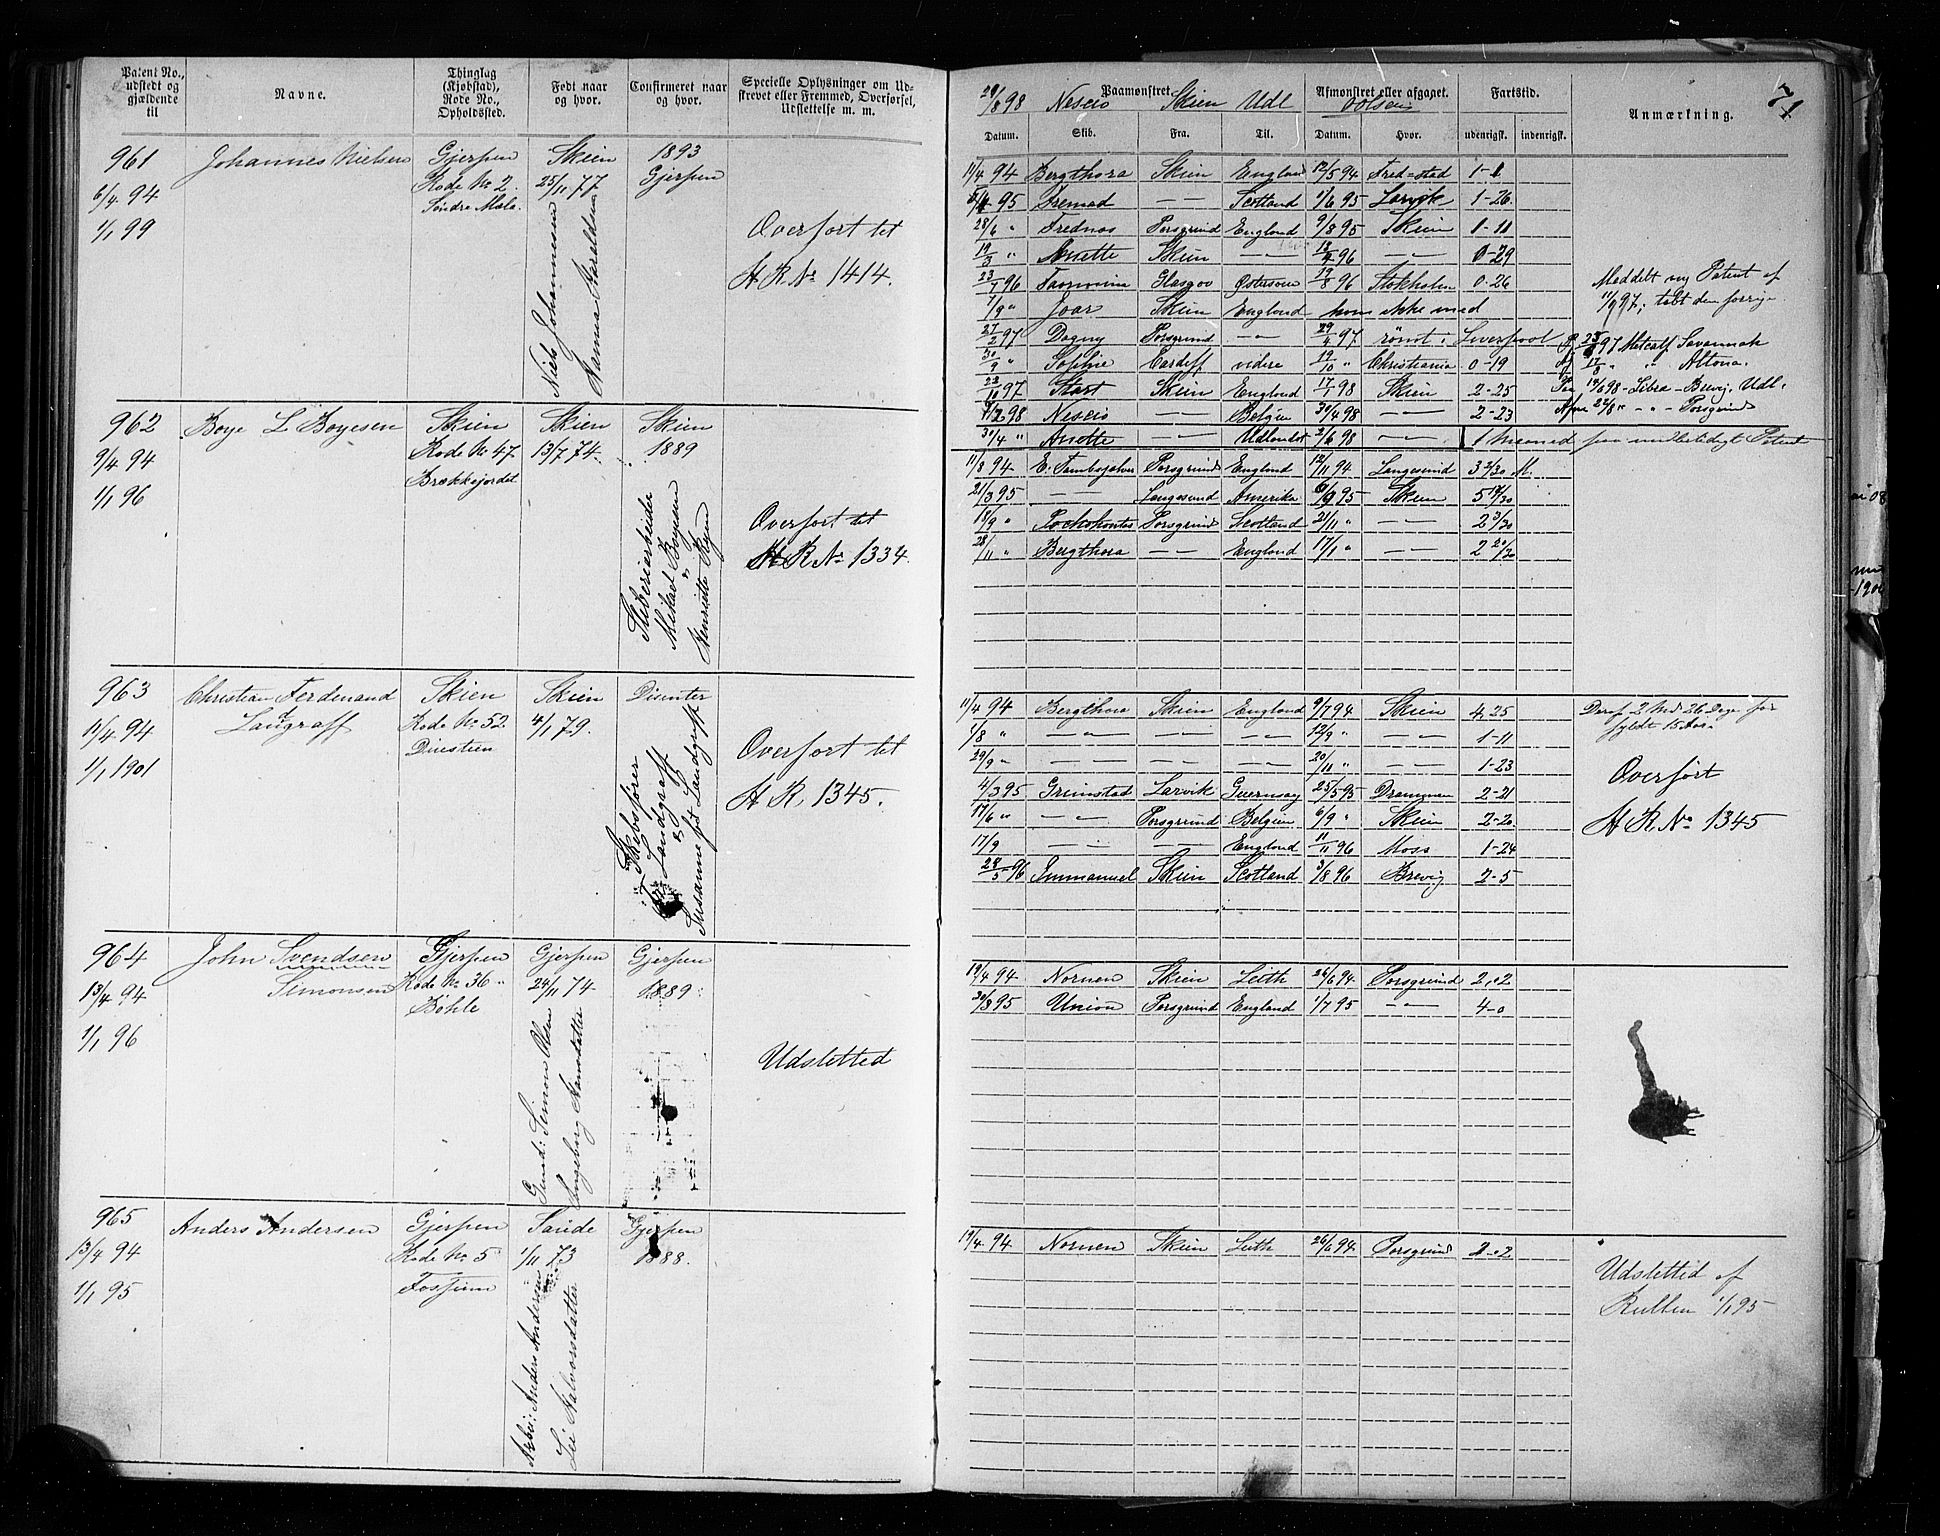 Patent No., udstedt og gjældende til
Navne.
Thinglag (Kjøbstad), Rode No., Opholdssted.
Født naar og hvor.
Confirmeret naar og hvor.
Specielle Oplysninger om Udskrevet eller Fremmed, Overførsel, Udslettelse m. m.
961
6/4 94
1/1 99
Johannes Nielsen
Gjerpen
Rode No 2.
Søndre Mæla.
Skien
25/11 77
Niels Johannesen
1893
Gjerpen
Overført til
H R No 1414.
962
9/4 94
1/1 96
Boye L Boyesen
Skien
Rode No 47.
Brækkejordet
Skien
13/7 74.
Skien
1889
Støberiarbeider
Mikael Boyesen
Henriette
Overført til
H R No 1334.
963
11/4 94
1/1 1901
Christian Ferdenand
Langraff
Skien
Rode No 52
Duestien
Skien
4/1 79.
Disenter
Landgraff
Susanne fød Landgraff
Overført til
H R. 1345.
964
13/4 94
1/1 96
John Svendsen
Simonsen
Gjerpen
Rode No 36.
Böhle
Gjerpen
24/11 74
Gmd: Simon Olsen
Ingeborg Hansdatter
Gjerpen
1889
Udslettet
965
13/4 94
1/1 95
Anders Andersen
Gjerpen
Rode No 5
Fossum
Saude
1/11 73
Arbei: Anders Andersen
Lie Halvorsdatter
Gjerpen
1888.
71
28/8 98 Nescio Skien Udl
Paamønstret
Afmønstret eller afgaaet.
Fartstid.
Anmærkning.
Datum. Skib. Fra. Til. Datum. Hvor. udenrigsk. indenrigsk.
11/4 94 Bergthora Skien England 12/5 94 Fred=stad 1-1
95 Fremad — — Scotland 1/6 95 Larvik 1-26.
28/6 " Frednæs Porsgrund England 9/8 95 Skien 1-11
Anette Skien — — 96 — — 0-29
23/7 96 Taormina Glasgov Østersøen 19/8 96 Stokholm 0-26
1/9 " Joar Skien England kom ikke med
27/2 97 Dagny Porsgrund — — 29/4 97 römt i Liverpool
30/9 " Sophie Cardiff videre 19/10 " Christiania 0-19
22/10 97 Start Skien England 17/1 98 Skien 2-25
98 Nescio — — Belgien 30/4 98 — — 2-23
30/4 " Anette — — Udlandet 2/6 98 — — 1 maaned paa
Meddelt ny Patent af
11/9 97, tabt den forrige
97 Metcalf Savannah
" " Altona.
19/6 98 - Libra - Brevig. Udl.
22/8 " - " - Porsgrund
11/8 94 E. Tambsjahver Porsgrund England 12/11 94 Langesund 3 2/30 M.
21/3 95 — — Langesund Amerika 95 Skien
18/9 " Pochohontes Porsgrund Scotland 21/11 " — — 2 3/30
28/11 " Bergthora — — England 17/1 " — — 2 20/30
11/4 94 Bergthora Skien England 9/7 94 Skien 4.25
1/8 " — " — — — — — 12/9 " — — 1-11
29/9 " — — — — — — 20/11 " — — 1-23
4/3 95 Grimstad Larvik Guernsay 25/5 95 Drammen 2-21
17/6 " — — Porsgrund Belgien 6/9 " Skien 2-20
17/9 — — — — England 11/11 96 Moss 1-24
28/5 96 Immanuel Skien Scotland 3/8 96 Brevig 2-5
Deraf 2 Md 26 Dage før
fyldt 15 Aar.
Overført
H R No 1345
19/4 94 Nornen Skien Leith 26/6 94 Porsgrund 2.02
95 Union Porsgrund England 1/7 95 — — 4-0
19/4 94 Nornen Skien Leith 26/6 94 Porsgrund 2.02
Udslettid af
Rullen 1/1 95